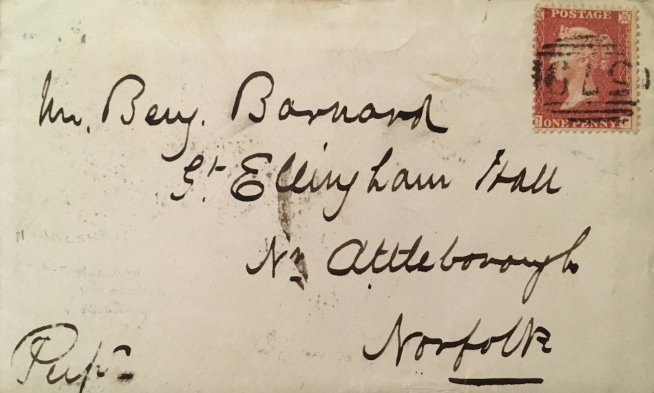 POSTAGE
ONE PENNY
Mr. Benj. Barnard
Gt Ellingham Hall
Nr Attleborough
Norfolk